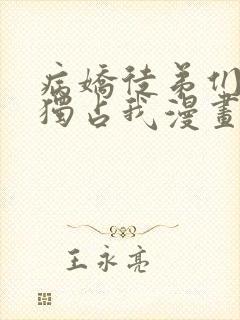 病嬌徒弟们
獨占我漫畫
王永亮